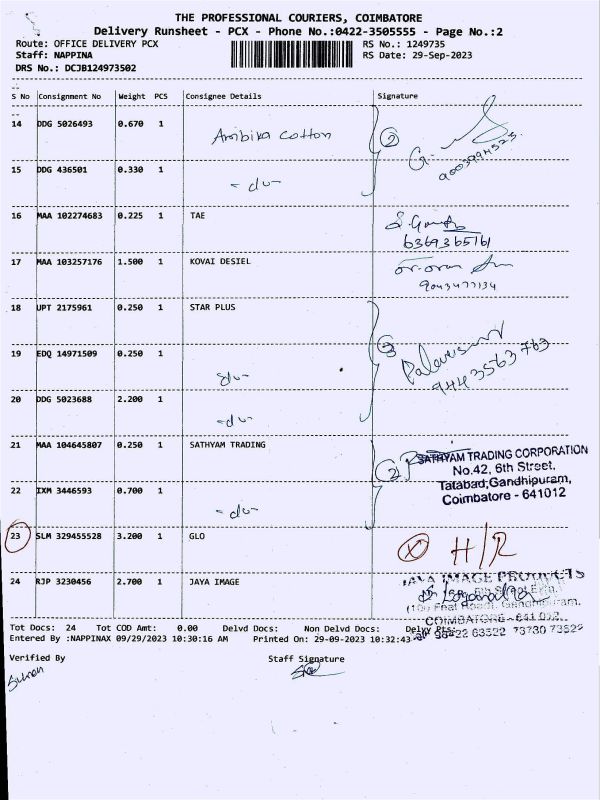 THE PROFESSIONAL COURIERS, COIMBATORE
Delivery Runsheet - PCX - Phone No.:0422-3505555 - Page No.:2
Route: OFFICE DELIVERY PCX RS No.: 1249735
Staff: NAPPINA RS Date: 29-Sep-2023
DRS No.: DCJB124973502
S No Consignment No Weight PCS Consignee Details Signature
14 DDG 5026493 0.670 1 Ambika Cotton 2 G.
15 DDG 436501 0.330 1 - do -
16 MAA 102274683 0.225 1 TAE
6369365161
17 MAA 103257176 1.500 1 KOVAI DESIEL
9043477134
18 UPT 2175961 0.250 1 STAR PLUS
19 EDQ 14971509 0.250 1 3
9443563763
20 DDG 5023688 2.200 1 - do -
21 MAA 104645807 0.250 1 SATHYAM TRADING 2 SATHYAM TRADING CORPORATION
No.42, 6th Street,
Tatabad,Gandhipuram,
Coimbatore - 641012
22 IXM 3446593 0.700 1 - do -
23 SLM 329455528 3.200 1 GLO X H/R
24 RJP 3230456 2.700 1 JAYA IMAGE JAYA IMAGE PRODUCTS
COIMBATORE - 641 012.
Tot Docs: 24 Tot COD Amt: 0.00 Delvd Docs: Non Delvd Docs: Delvy Pts:
Entered By :NAPPINAX 09/29/2023 10:30:16 AM Printed On: 29-09-2023 10:32:43
Verified By Staff Signature
Suman